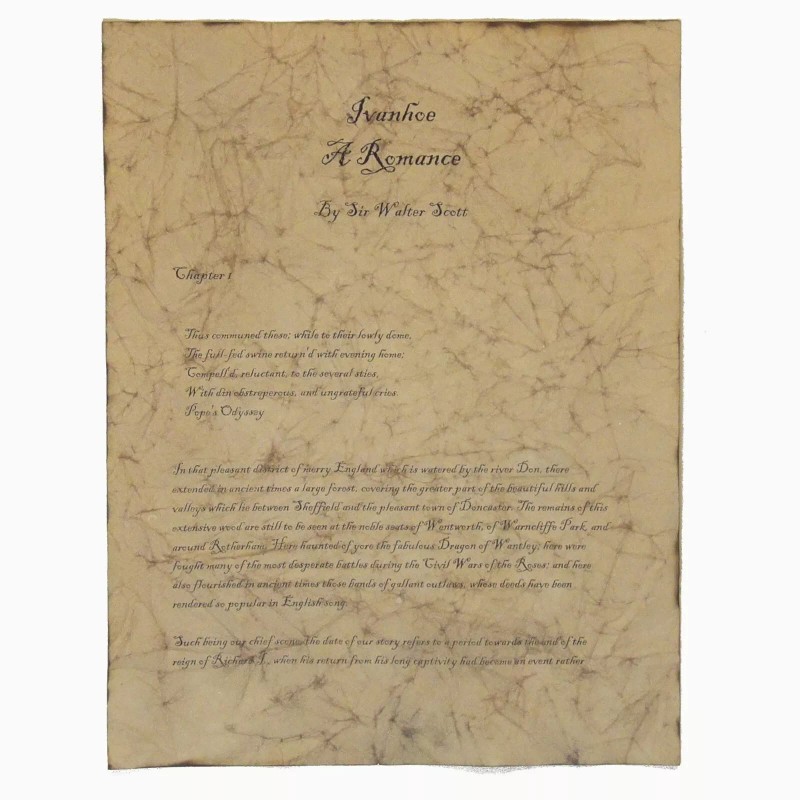 Ivanhoe
A Romance
By Sir Walter Scott
Chapter 1
Thus communed these; while to their lowly dome,
The full-fed swine return'd with evening home;
Compell'd, reluctant, to the several sties,
With din obstreperous, and ungrateful cries.
Pope's Odyssey
In that pleasant district of merry England which is watered by the river Don, there
extended in ancient times a large forest, covering the greater part of the beautiful hills and
valleys which lie between Sheffield and the pleasant town of Doncaster. The remains of this
extensive wood are still to be seen at the noble seats of Wentworth, of Warncliffe Park, and
around Rotherham. Here haunted of yore the fabulous Dragon of Wantley; here were
fought many of the most desperate battles during the Civil Wars of the Roses; and here
also flourished in ancient times those bands of gallant outlaws, whose deeds have been
rendered so popular in English song.
Such being our chief scene, the date of our story refers to a period towards the end of the
reign of Richard I., when his return from his long captivity had become an event rather